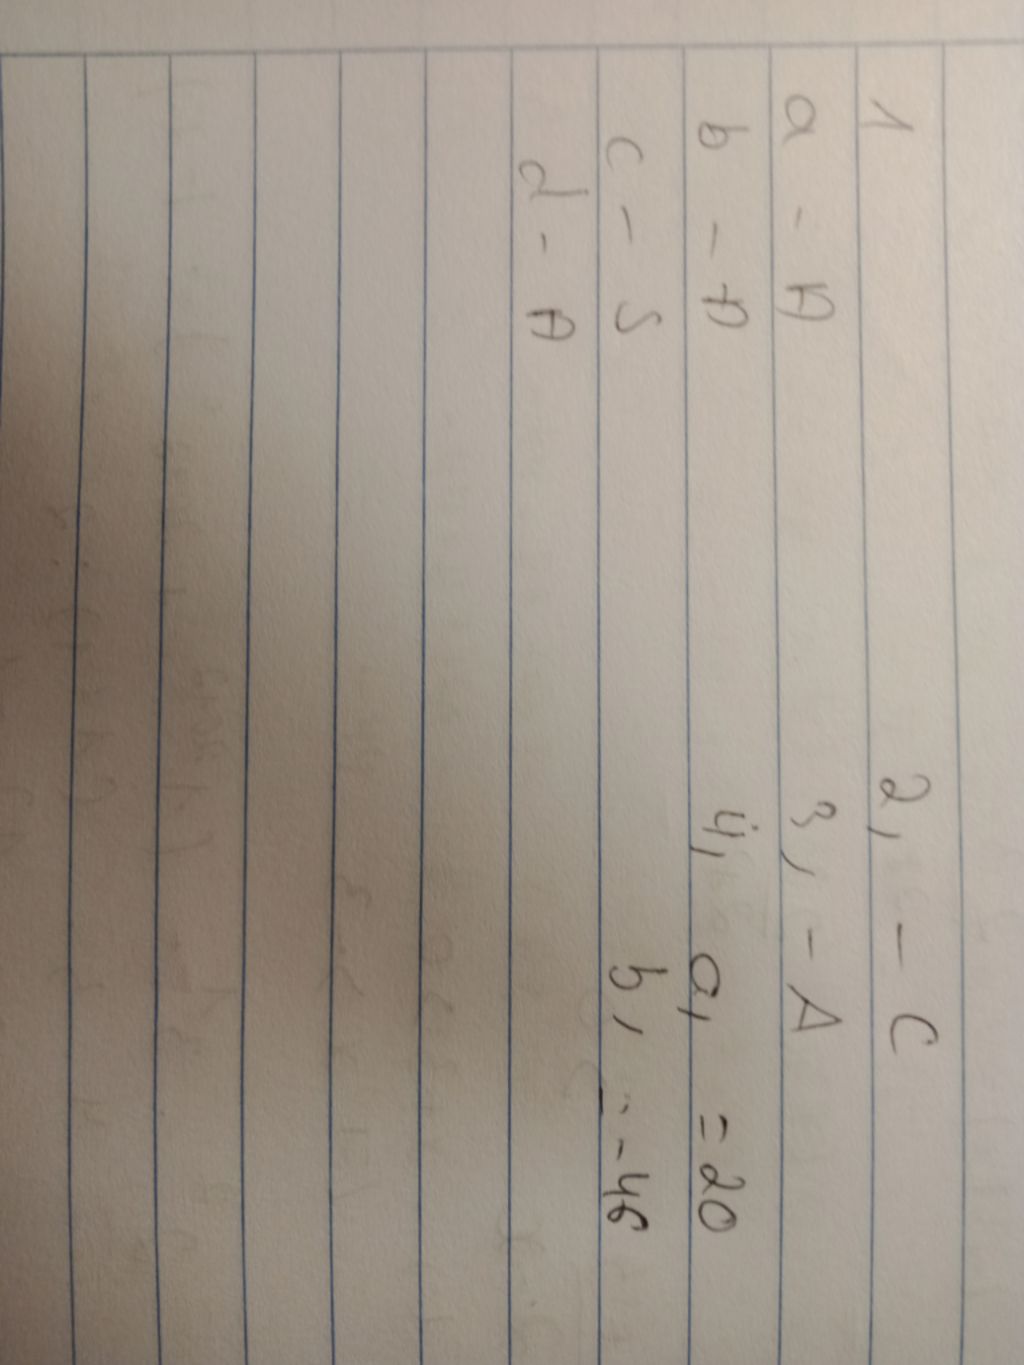 1
a - A
b - A
c - S
d - A
2, - C
3, - A
4, a, = 20
b, = -46